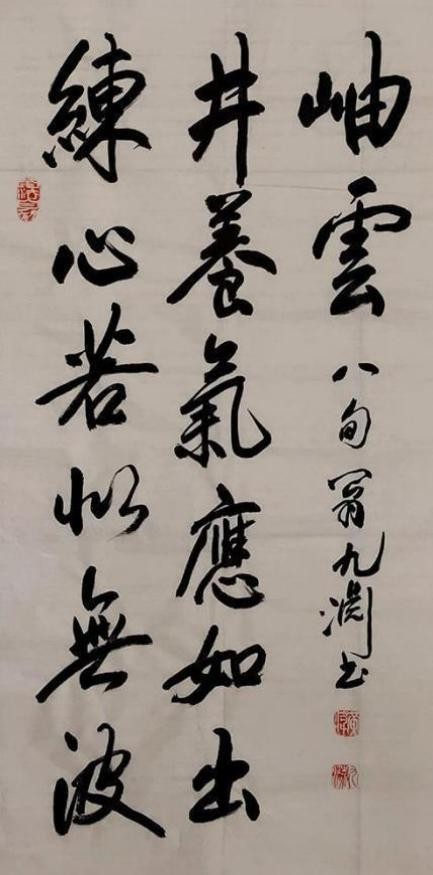 練心若似無波
井養氣應如出
岫雲
八旬翁九渊书